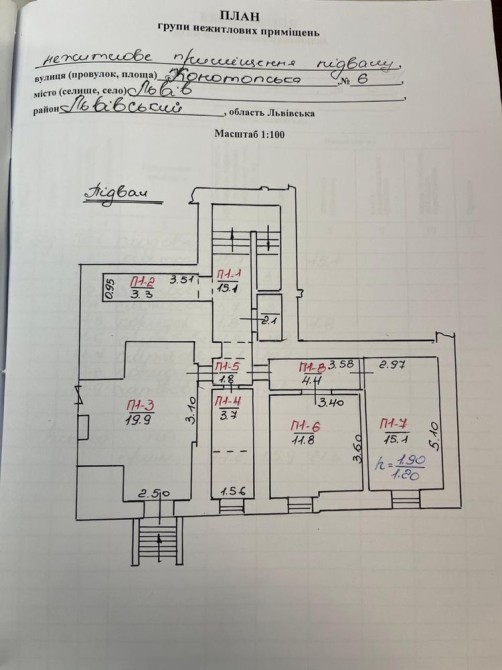 ПЛАН
групи нежитлових приміщень
нежитлове приміщення підвалу,
вулиця (провулок, площа) Конотопська, № 6,
місто (селище, село) Львів,
район Львівський, область Львівська
Масштаб 1:100
Підвал
0.95 П1-2 3.3 3.51
П1-1 15.1
2.1
П1-5 1.8
П1-8 4.4 3.58
2.97
П1-3 19.9 3.10
П1-4 3.7
3.40
П1-6 11.8 3.60
П1-7 15.1 5.10
h= 1.90 / 1.20
2.50
1.56